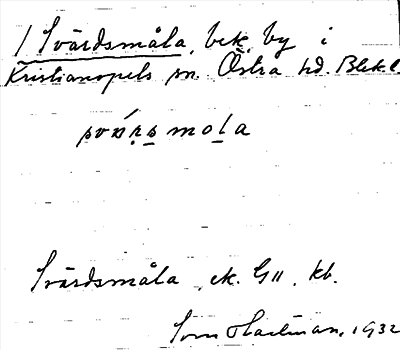 / Svärdsmåla, bek. by i
Kristianopels sn. Östra hd. Blek. l.
svárs mola
Svärdsmåla, ek. G11, kb.
Hartman, 1932